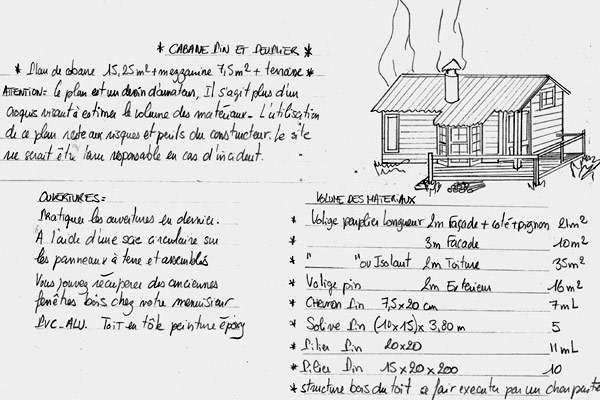 * CABANE PIN ET PEUPLIER *
* Plan de cabane 15,25m² + mezzanine 7,5m² + terrasse *
ATTENTION: le plan est un dessin d'amateur, Il s'agit plus d'un
croquis visant à estimer le volume des matériaux - L'utilisation
de ce plan reste aux risques et perils du constructeur. Le site
ne serait être tenu responsable en cas d'incident.
OUVERTURES=
Pratiquer les ouvertures en dernier.
A l'aide d'une scie circulaire sur
les panneaux à terre et assemblés
Vous pouvez récupérer des anciennes
fenêtres bois chez notre menuisier
PVC-ALU. Toit en tôle peinture époxy
VOLUME DES MATERIAUX
* Volige peuplier longueur 2m Façade + coté + pignon 21m²
* 3m Façade 10m²
* " "ou Isolant 2m Toiture 35m²
* Volige pin 2m Exterieur 16m²
* Chevron Pin 7,5x20 cm 7mL
* Solive Pin (10x15) x 3,80 m 5
* Pilier Pin 20x20 11mL
* Pilier Pin 15x20x200 10
* structure bois du toit a fair executer par un charpentier